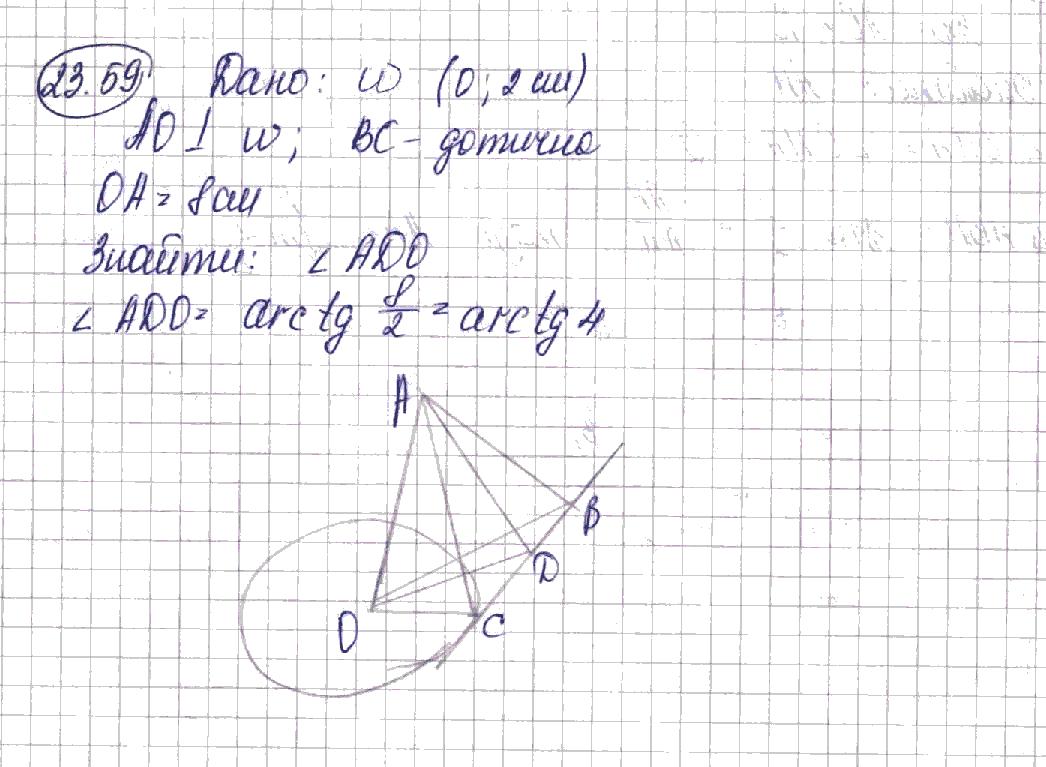 23.59 Дано: ω (O; 2 см)
AO ⊥ ω; BC - дотична
OA = 8 см
Знайти: ∠ ADO
∠ ADO = arctg 8/2 = arctg 4
A
B
D
O
C